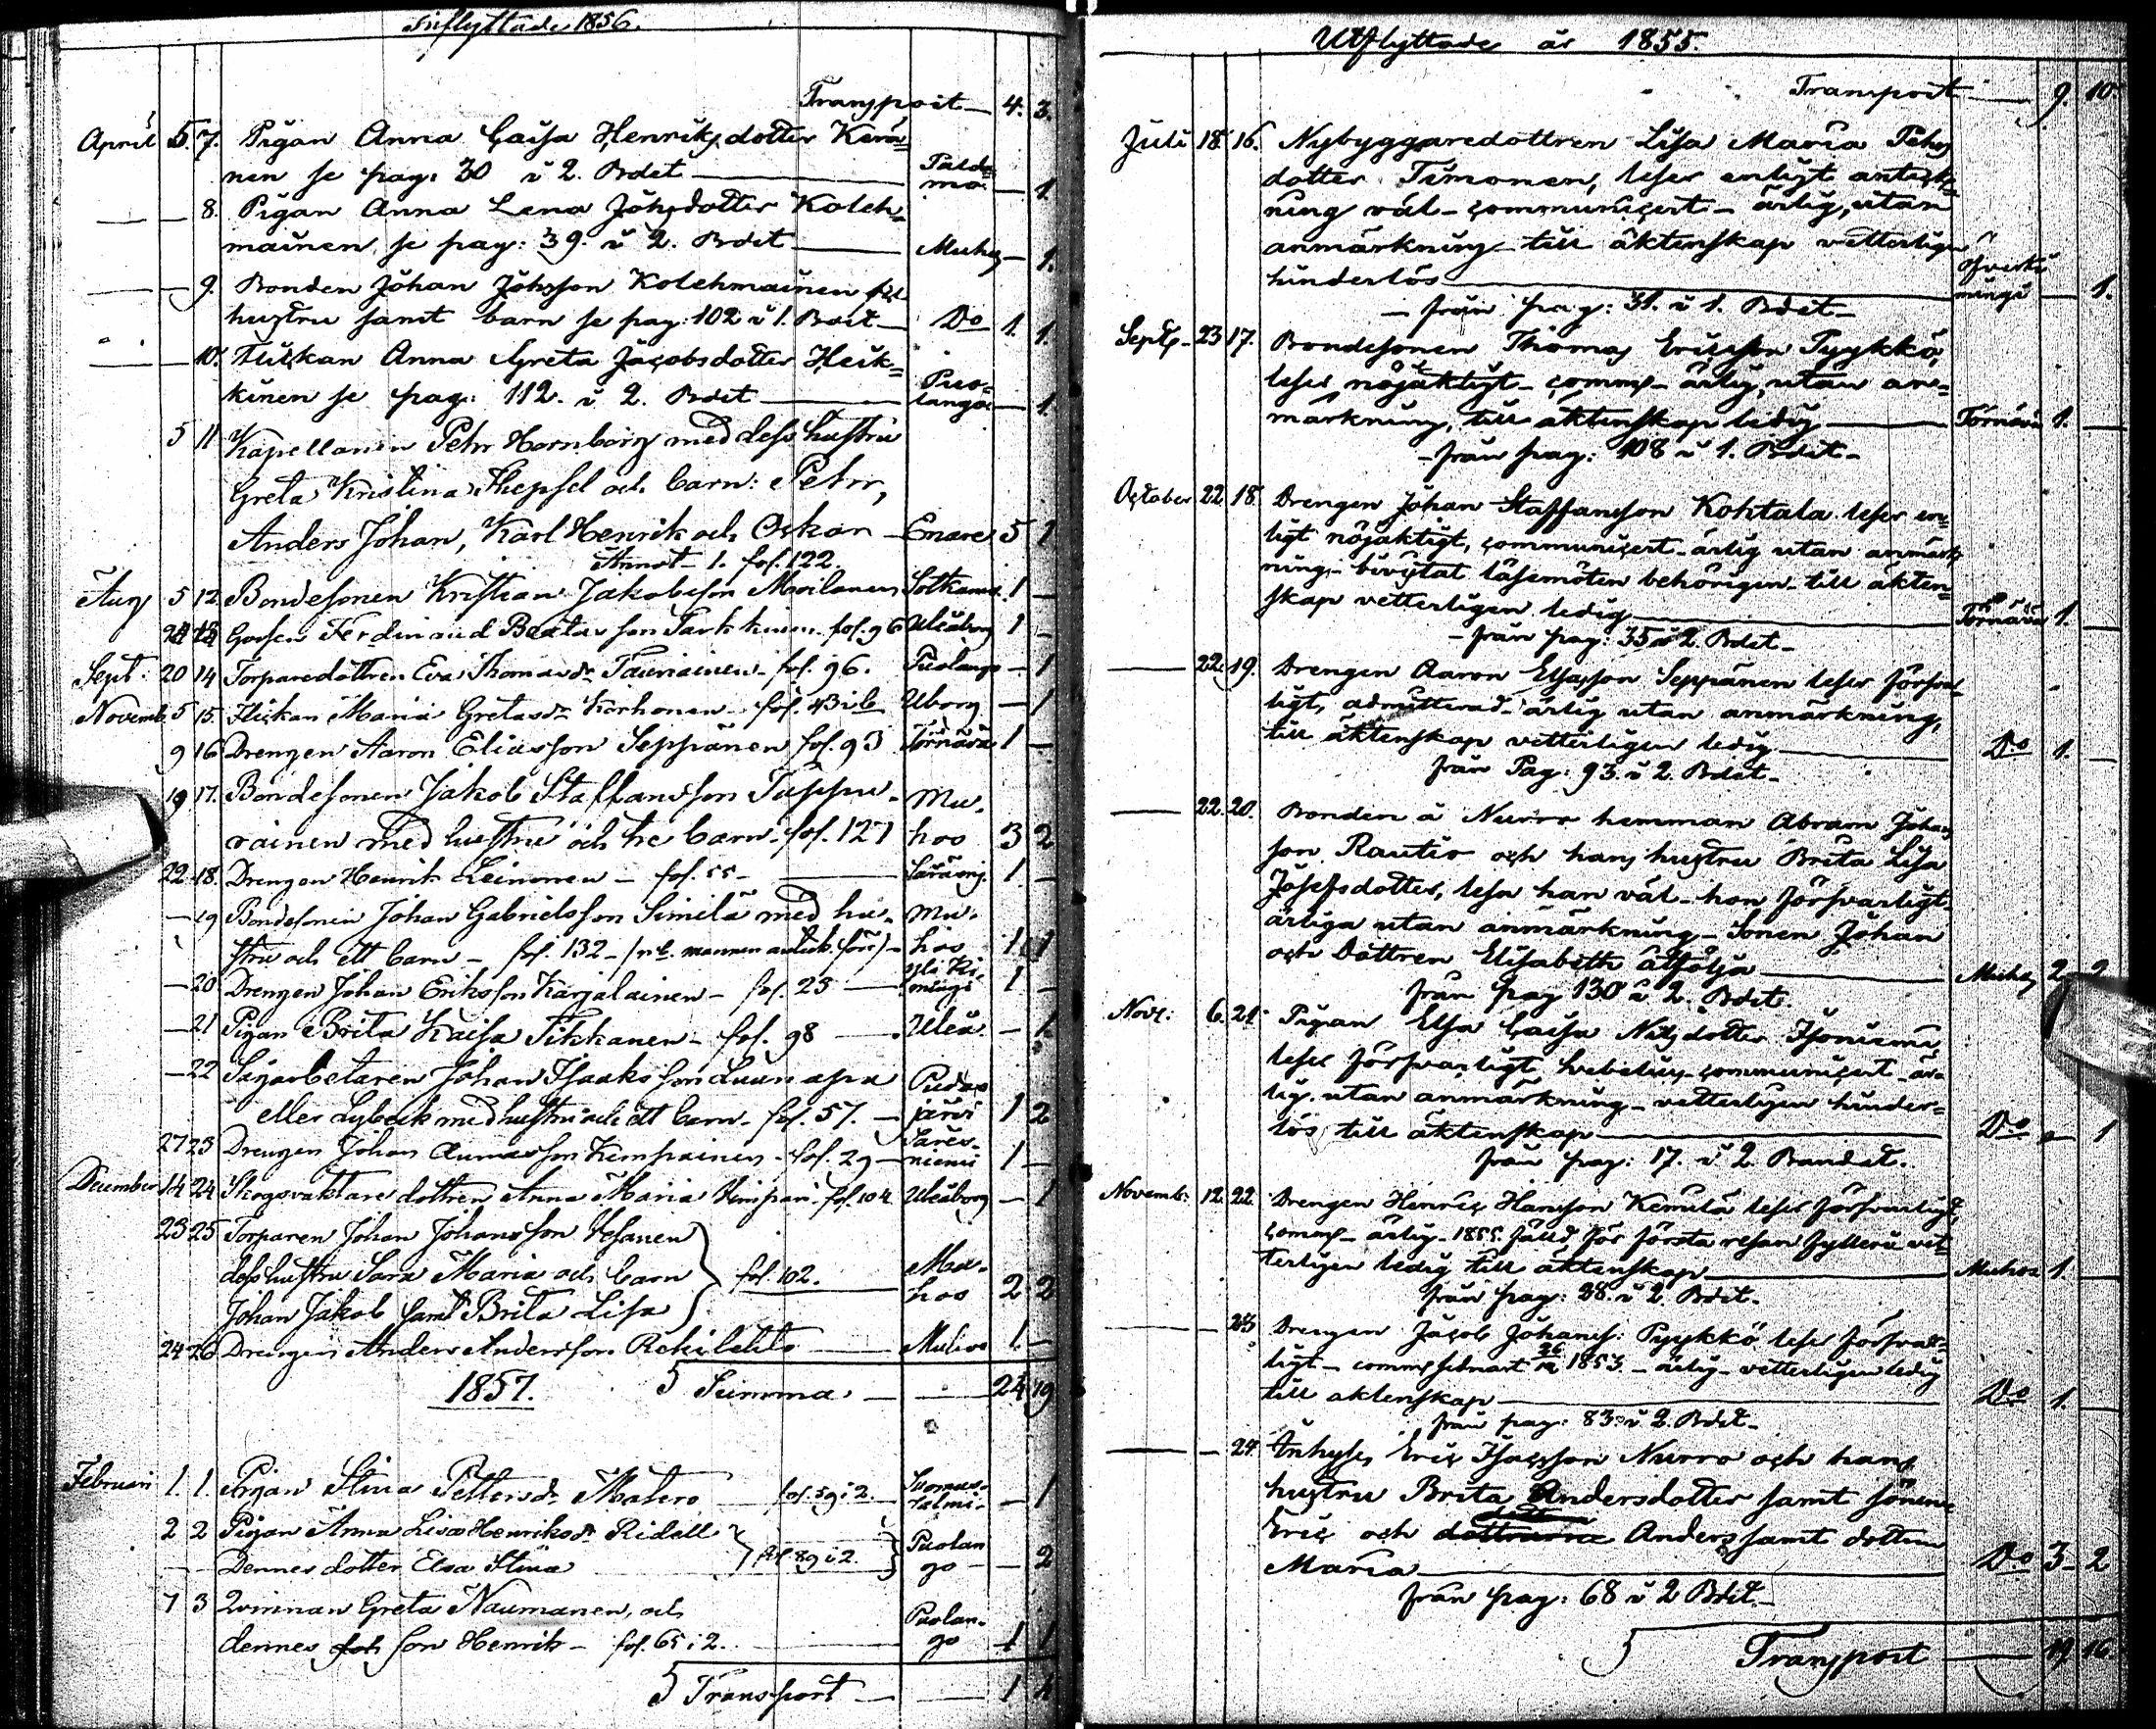 Inflyttade 1856.
Transport — 4. 3.
April 5. 7. Pigan Anna Caisa Henriksdotter Kerä=
nen se pag: 30 i 2. Bdet — 1
— — 8. Pigan Anna Lena Johsdotter Koleh=
mainen se pag: 39. i 2. Bdet — Muhos — 1.
— — 9. Bonden Johan Johsson Kolehmainen
hustru samt barn se pag: 102 i 1. Bdet — Do 1. 1.
— — 10. Flickan Anna Greta Jacobsdotter Heik=
kinen se pag: 112. i 2. Bdet — Puo=
lango — 1.
5 11 Kapellanen Petr Hornborg med dess hustru
Greta Kristina Thepsel och barn: Petr,
Anders Johan, Karl Henrik och Oskar — Enare 5 1
Annot. 1. fol. 122.
Aug 5 12 Bondesonen Kristian Jakobsson Moilanen Sotkamo 1 —
Gossen Ferdinand Beatasson Tarkkinen fol. 96 Uleåborg 1 —
Sept. 20 14 Torparedottren Eva Thomasdr Tauriainen fol. 96. Puolango — 1
Novemb. 5 15. Flickan Maria Gretasdr Korhonen fol. Uborg — 1
9 16 Drengen Aaron Eliasson Seppänen fol. 93 Törnävä 1 —
19 17. Bondesonen Jakob Staffansson Tuppu- Mu-
rainen med hustru och tre barn. fol. 127 hos 3 2
22 18. Drengen Henrik Leinonen — fol. 55 — 1 —
— 19 Bondesonen Johan Gabrielsson Similä med hu- Mu-
stru och ett barn — fol. 132 — (n.b. mannen antech. förr) — hos 1 1
— 20 Drengen Johan Eriksson Karjalainen — fol. 23 — Yli Ki-
mingi 1 —
— 21 Pigan Brita Kaisa Tikkanen — fol. 98 — Uleå. — 1
— 22 Sågarbetaren Johan Isaksson Luunapu Pudas
eller Lybeck med hustru och ett barn. fol. 57. — järvi 1 2
27 23 Drengen Johan Aunesson Kemppainen — fol. 29 — Säres-
niemi 1 —
December 14 24 Skogsvaktaredottren Anna Maria Kimpari fol. 104 Uleåborg — 1
23 25 Torparen Johan Johansson Vesanen
dess hustru Sara Maria och barn fol. 102. Mu-
hos 2 2
Johan Jakob samt Brita Lisa
24 26 Drengen Anders Andersson Rekilehto — Muhos 1. —
1857. Summa — 24 19
Februari 1 1. Pigan Stina Pettersdr Matero — fol. 59 i 2. Suomus-
salmi — 1
2 2 Pigan Anna Lisa Henriksdr Ridell
fol. 89 i 2. Puolan
Dennes dotter Elsa Stina go — 2
7 3 Qvinnan Greta Naumanen, och
dennes son Henrik — fol. 65 i 2. Puolan-
go 1 1
Transport — 1 4
Utflyttade år 1855.
Transport — 9. 10.
Juli 18. 16. Nybyggaredottren Lisa Maria Pehrs
dotter Timonen, läser enligt anteck=
ning väl — communicert — ärlig, utan
anmärkning — till äktenskap vetterligen
hinderlös — öfverki
mingi — 1.
— från pag: 31. i 1. Bdet —
Sept. — 23 17. Bondesonen Thomas Ericsson Pyykkö,
läser nöjaktigt — comms — ärlig, utan an=
märkning, till äktenskap ledig — Törnävä 1. —
— från pag: 108 i 1. Bdet —
October 22. 18. Drengen Johan Staffansson Kohtala läser en=
ligt nöjaktigt, communicert — ärlig utan anmärk=
ning — bivistat läsemöten behörigen — till äkten=
skap vetterligen ledig — Törnävä 1. —
— från pag: 35 i 2. Bdet —
— 22. 19. Drengen Aaron Eliasson Seppänen läser försvar=
ligt, admitterad — ärlig utan anmärkning,
till äktenskap vetterligen ledig — Do 1. —
från Pag: 93. i 2. Bdet —
— 22. 20. Bonden å Nurro hemman Abram Johans
son Rautio och hans hustru Brita Lisa
Josefsdotter, läsa han väl — hon försvarligt
ärliga utan anmärkning — Sonen Johan
och Dottren Elisabeth åtfölja — Muhos 2 2
från pag 130 i 2. Bdet.
Nov: 6. 21. Pigan Elsa Caisa Nilsdotter Isoniemi
läser försvarligt communicert — är=
lig utan anmärkning — vetterligen hinder=
lös till äktenskap — Do — 1
från pag: 17. i 2. Bandet.
Novemb: 12. 22. Drengen Henric Hansson Kemilä läser försvarligt,
comms — ärlig — 1855. fälld för första resan fylleri vet=
terligen ledig till äktenskap — Muhos 1. —
från pag: 28. i 2. Bdet —
— 23 Drengen Jacob Johanss: Pyykkö läser försvar=
ligt — comms sednast 1853. — ärlig — vetterligen ledig
till äktenskap — Do 1. —
från pag: 83. i 2. Bdet —
— — 24. Inhyses Eric Isacsson Nurro och hans
hustru Brita Andersdotter samt sönerne
Eric och Anders samt dottren
Maria — Do 3 — 2
från pag: 68 i 2 Bdet. —
Transport — 19 16